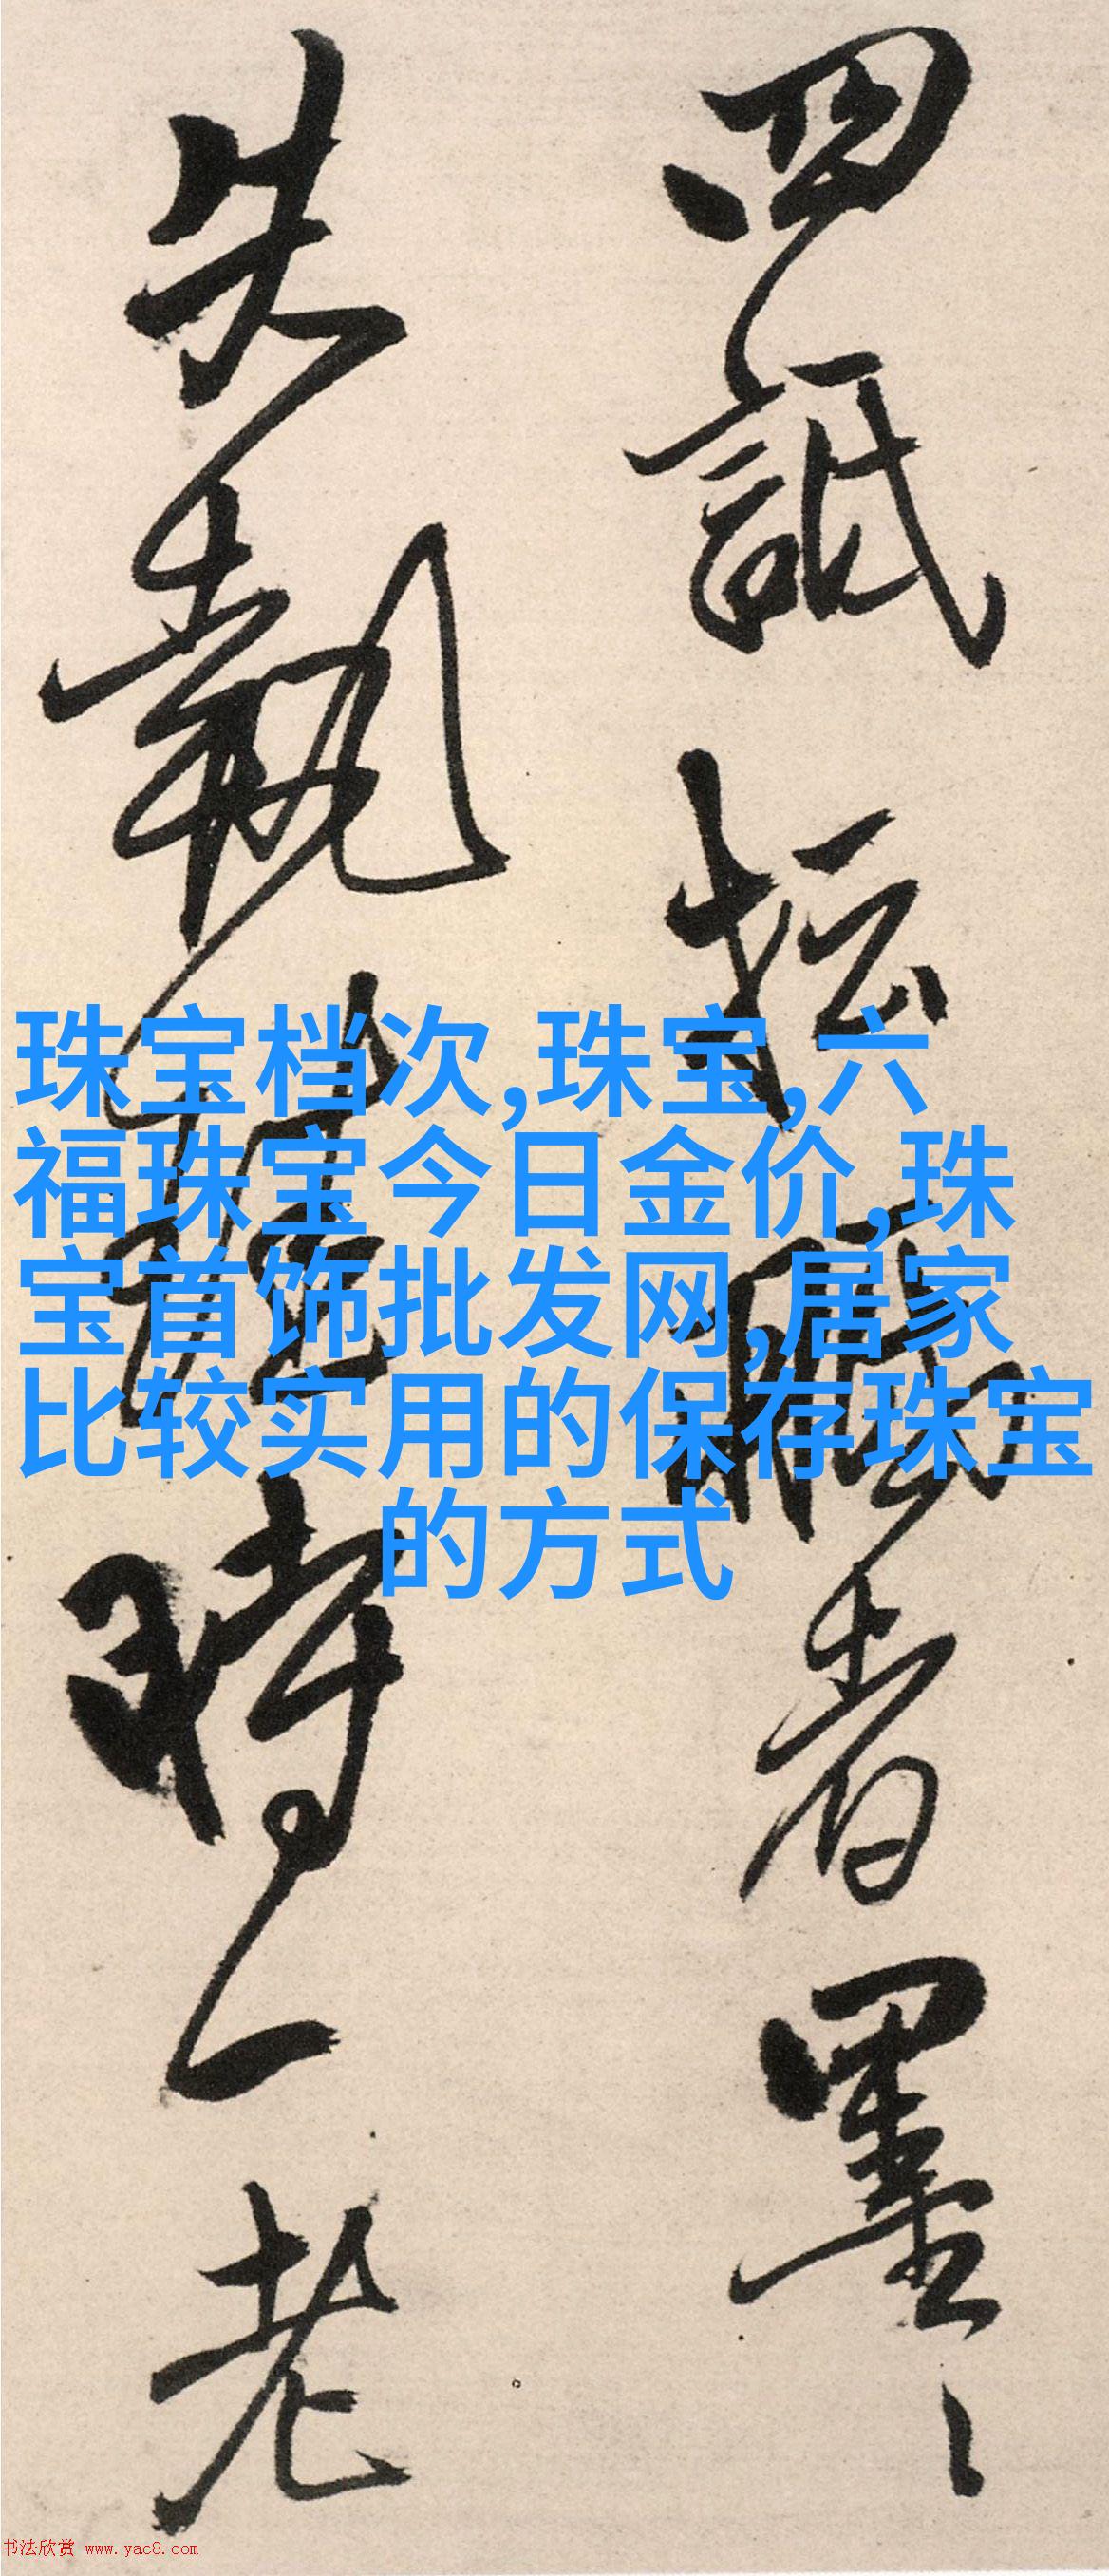 珠宝档次,珠宝,六
福珠宝今日金价,珠
宝首饰批发网,居家
比较实用的保存珠宝
的方式
四
者墨
失執
時一老
书法欣赏 www.yac8.com